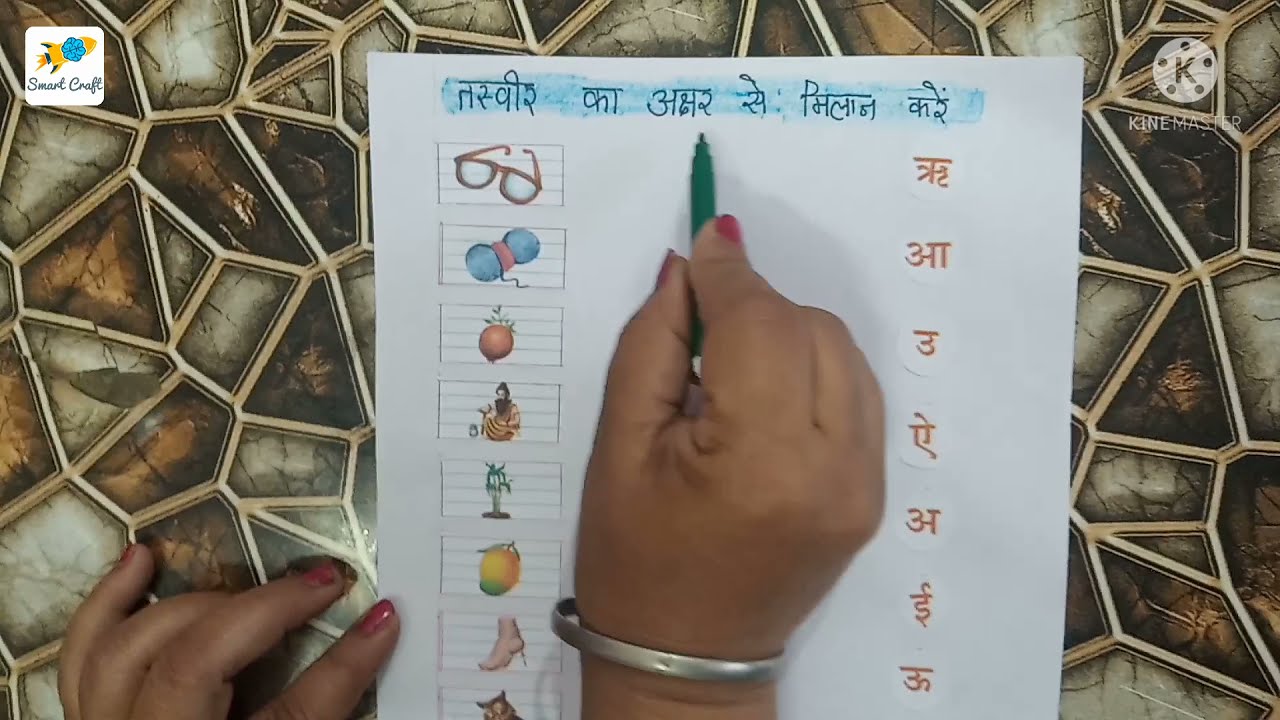 Smart Craft
KINEMASTER
तस्वीर का अक्षर से मिलान करें
ऋ
आ
उ
ऐ
अ
ई
ऊ